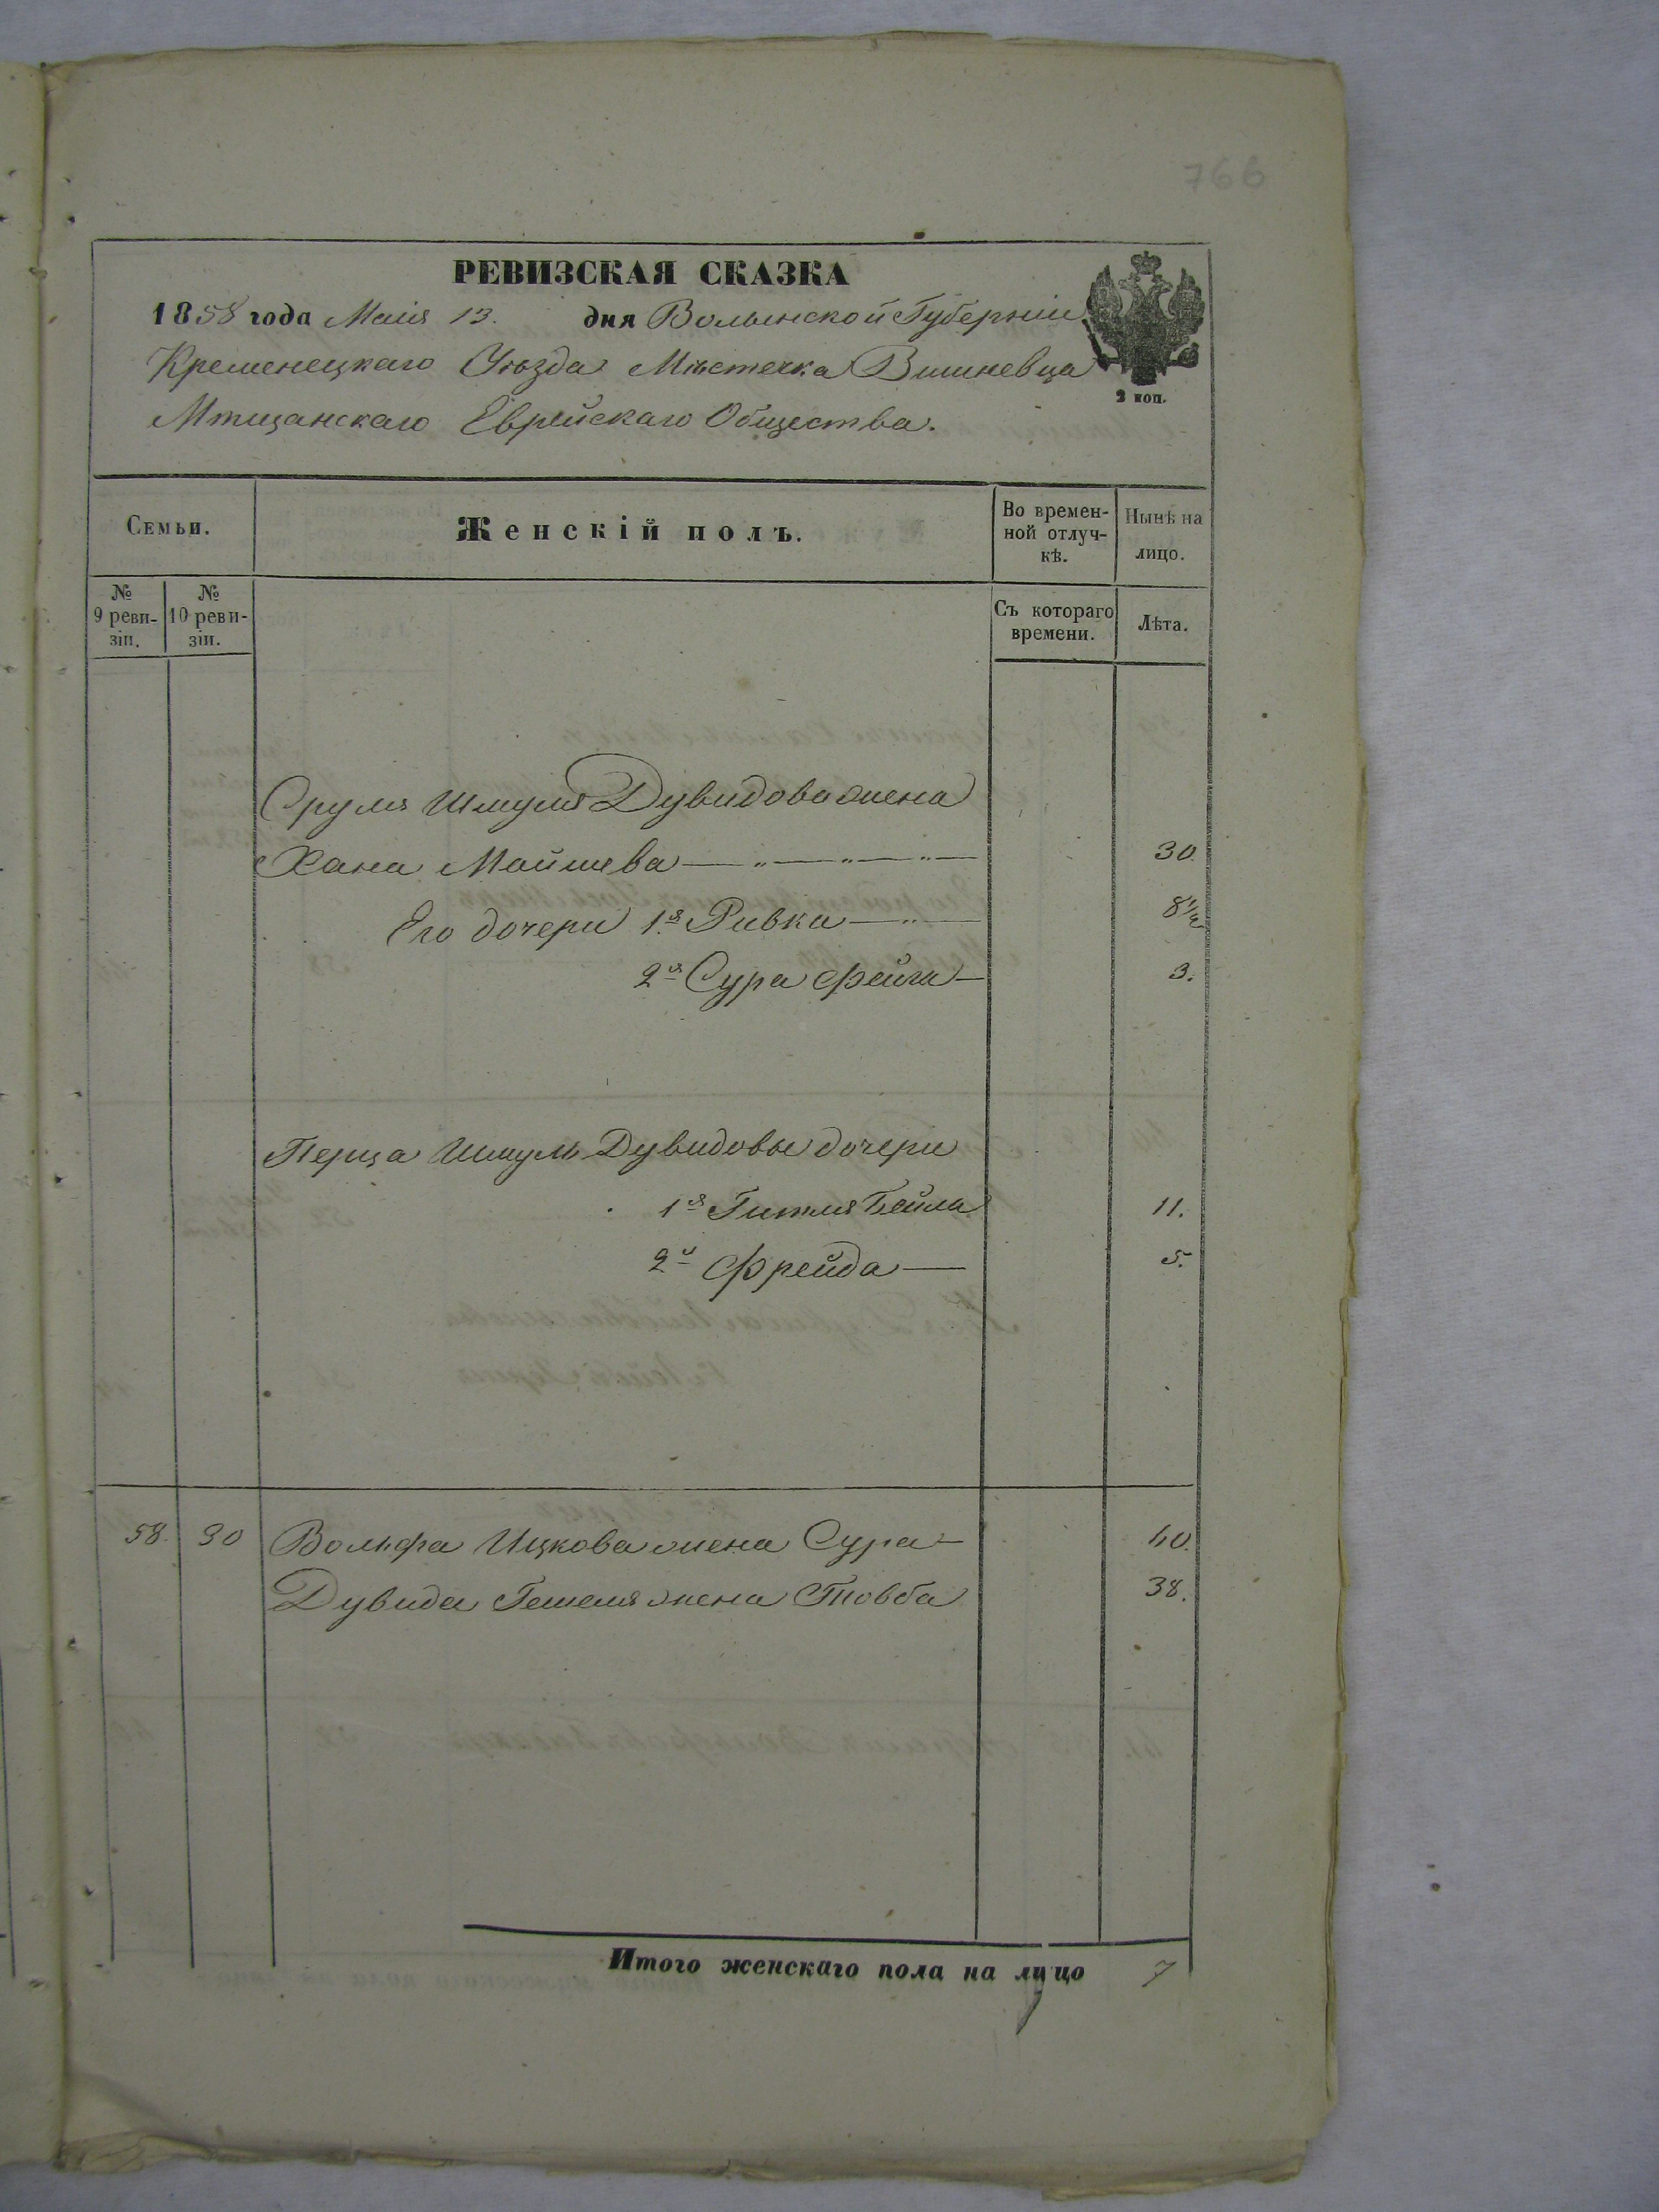 766
РЕВИЗСКАЯ СКАЗКА
1858 года Маия 13. дня Волынской Губерніи
Кременецкаго Уѣзда Мѣстечка Вишневца
Мѣщанскаго Еврейскаго Общества.
2 коп.
Семьи.
Женскій полъ.
Во времен-
ной отлуч-
кѣ.
Нынѣ на
лицо.
№
9 реви-
зіи.
№
10 реви-
зіи.
Съ котораго
времени.
Лѣта.
Сруля Шмуля Дувидова жена
Хана Мойшева — „ — „ — „ — 30.
Его дочери 1я Ривка — „ — 8½
2я Сура Фейга — 3.
Перца Шмуль Дувидовы дочери
1я Гитля Бейла 11.
2я Фрейда — 5.
58. 30 Вольфа Ицкова жена Сура — 40.
Дувида Гешеля жена Товба 38.
Итого женскаго пола на лицо 7